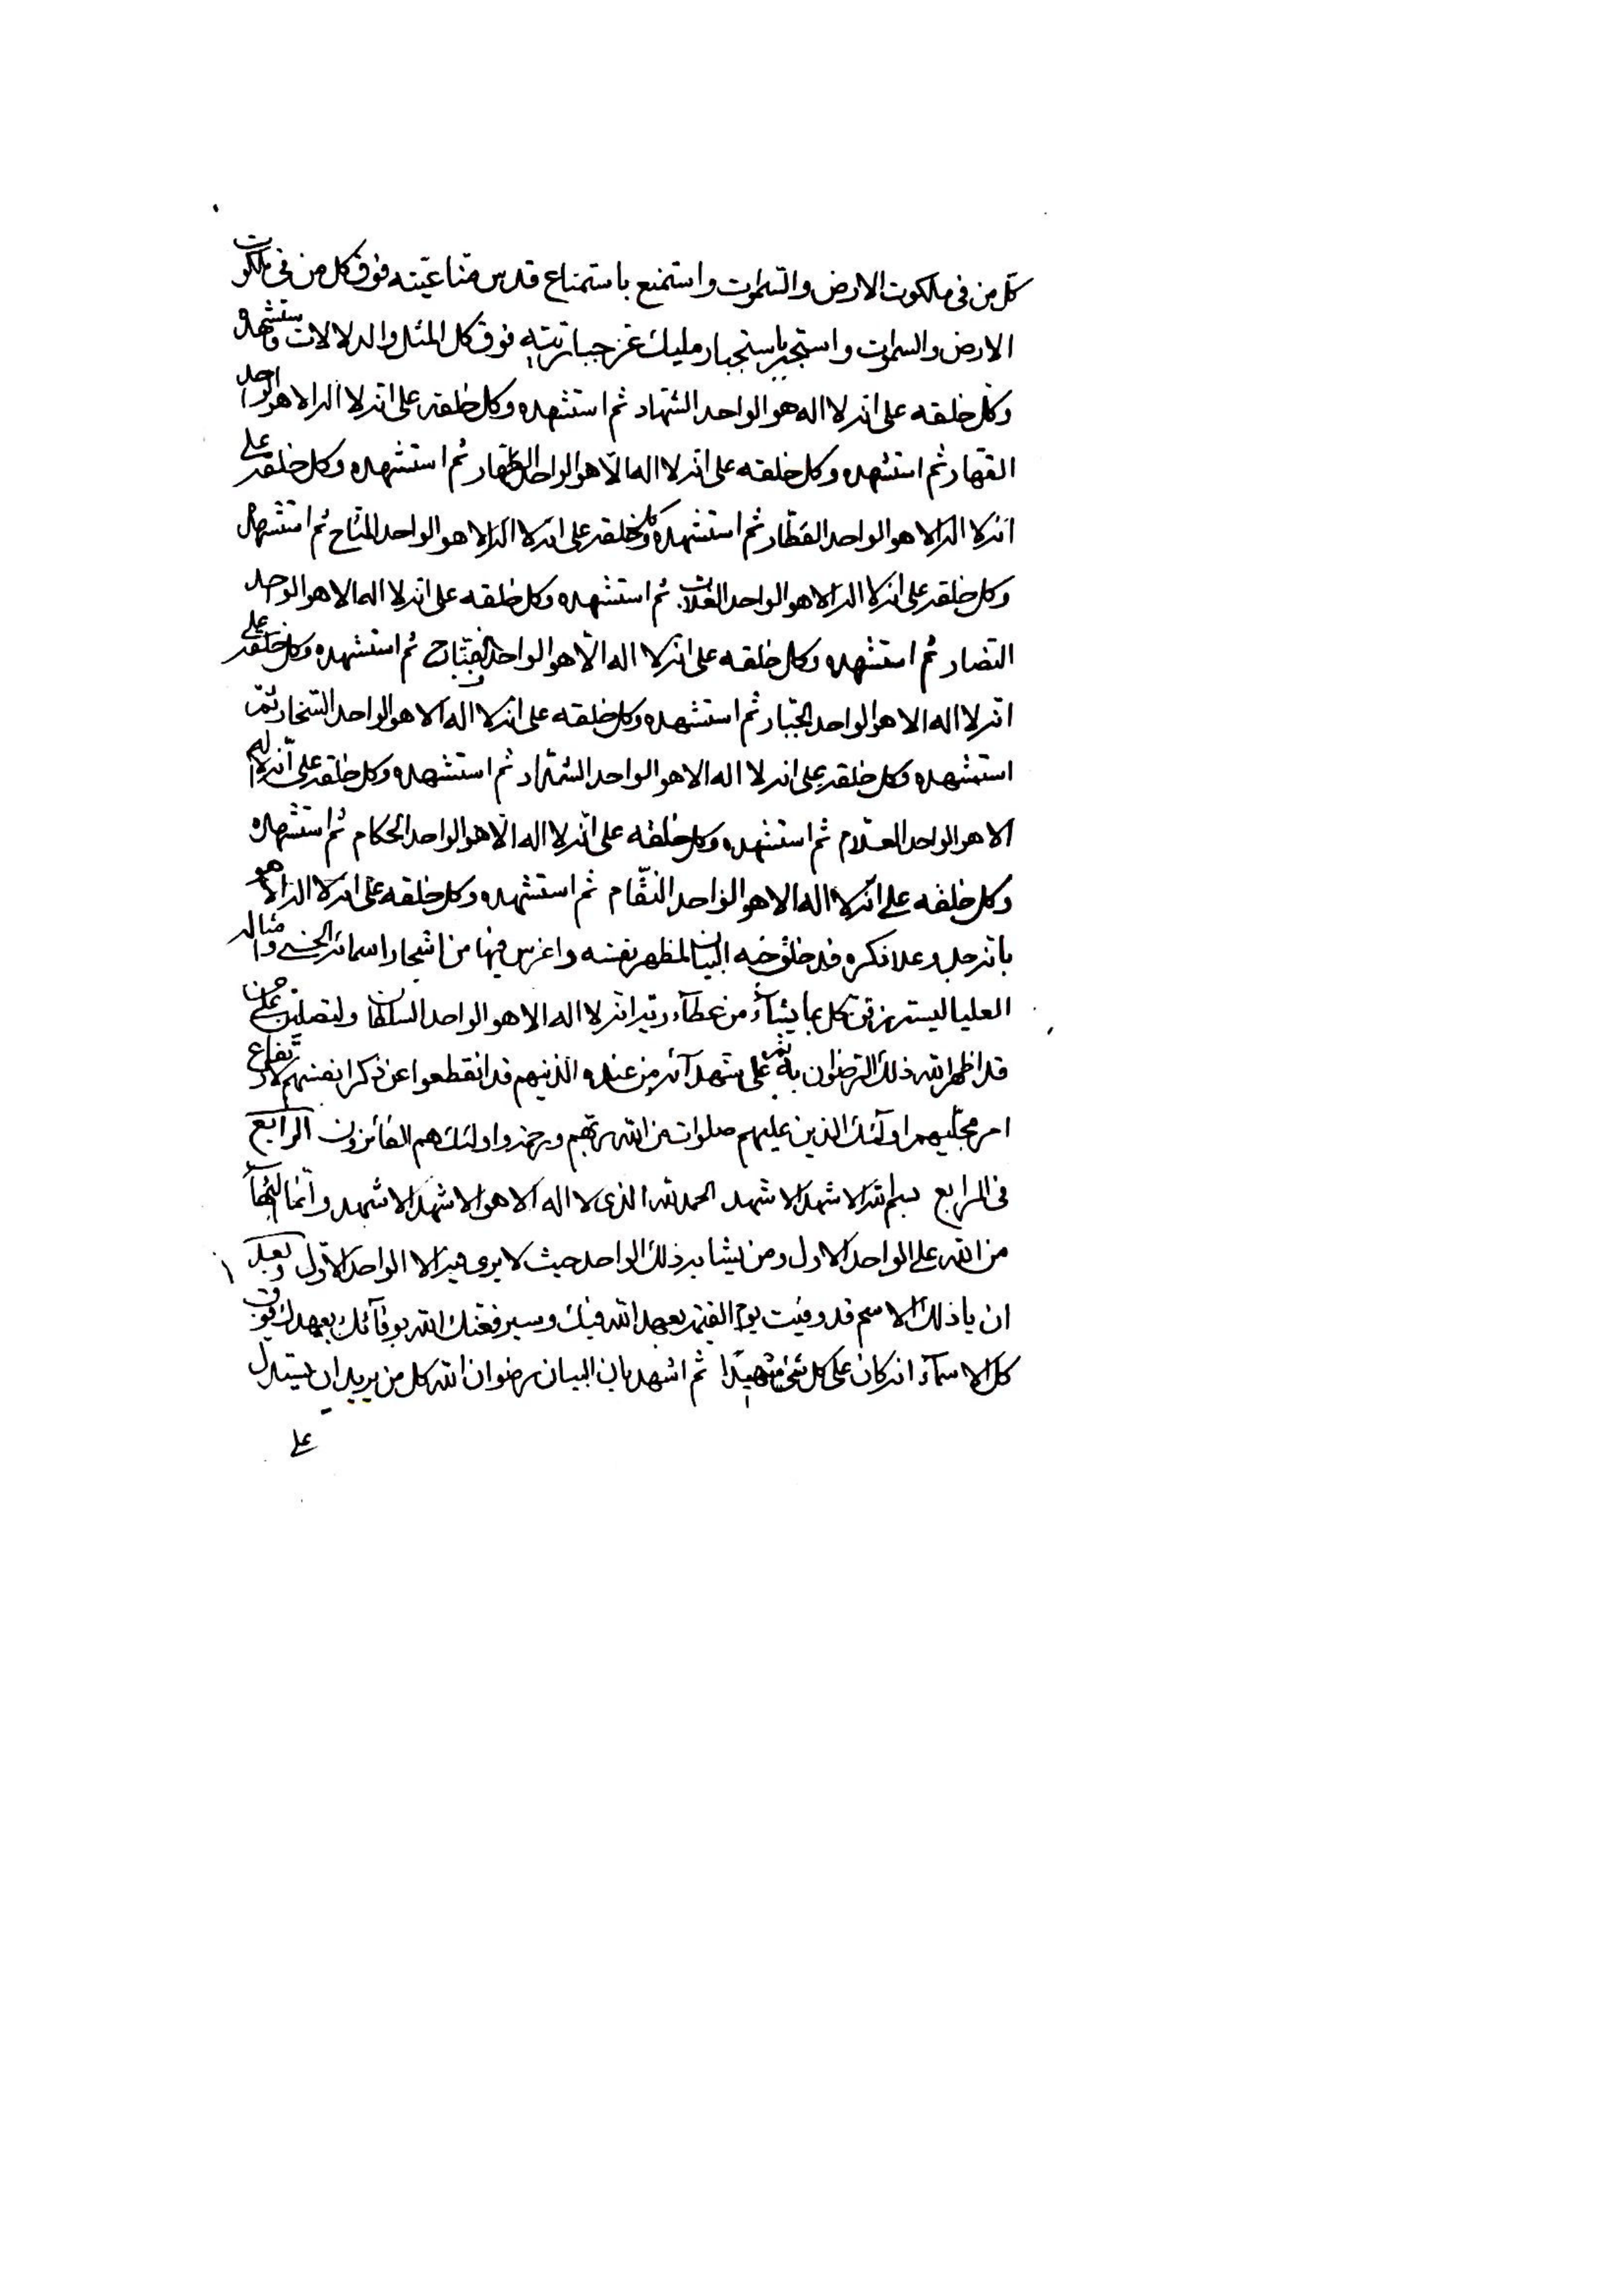 كل من فى ملكوت الارض والسموات واستمنع باستمناع قدس مناعيته فوق كل من فى ملكوت
الارض والسموات واستجبر باستجبار مليك عز جباريته فوق كل المثل والدلالات واستشهده
وكل خلقه على انه لا اله هو الواحد الشهاد ثم استشهده وكل خلقه على انه لا اله الا هو الواحد
القهار ثم استشهده وكل خلقه على انه لا اله الا هو الواحد الظهار ثم استشهده وكل خلقه على
انه لا اله الا هو الواحد القطار ثم استشهده وكل خلقه على انه لا اله الا هو الواحد المناح ثم استشهده
وكل خلقه على انه لا اله الا هو الواحد ثم استشهده وكل خلقه على انه لا اله الا هو الواحد
النصار ثم استشهده وكل خلقه على انه لا اله الا هو الواحد الفتاح ثم استشهده وكل خلقه على
انه لا اله الا هو الواحد الجبار ثم استشهده وكل خلقه على انه لا اله الا هو الواحد السخار ثم
استشهده وكل خلقه على انه لا اله الا هو الواحد ثم استشهده وكل خلقه على انه لا اله
الا هو الواحد العلام ثم استشهده وكل خلقه على انه لا اله الا هو الواحد الحكام ثم استشهده
وكل خلقه على انه لا اله الا هو الواحد النقام ثم استشهده وكل خلقه على انه لا اله الا هو
بانه جل وعلا ذكره قد خلق جنه البيان لمظهر نفسه واغرس فيها من اشجار اسمائه الحسنى وامثاله
العليا ليسترزقن كل بما يشاء من عطاء ربه انه لا اله الا هو الواحد السلطان ولتصلين على من
قد اظهر الله ذلك الرضوان به ثم على شهدآئه من عنده الذينهم قد انقطعوا عن ذكر انفسهم لارتفاع
امر مجليهم اولئك الذين عليهم صلوات من الله ربهم ورحمة واولئك هم الفائزون الرابع
فى الرابع بسم الله الاشهد الاشهد الحمد لله الذى لا اله الا هو الاشهد الاشهد وانما البهآء
من الله على الواحد الاول ومن يشابه ذلك الواحد حيث لا يرى فيه الا الواحد الاول وبعد
ان يا ذلك الاسم قد وفيت يوم القيمة بعهد الله فيك وسيرفعنك الله بوفآئك بعهدك فوق
كل الاسمآء انه كان على كل شئ شهيدا ثم اشهد بان البيان رضوان الله كل من يريد ان يستدل
على